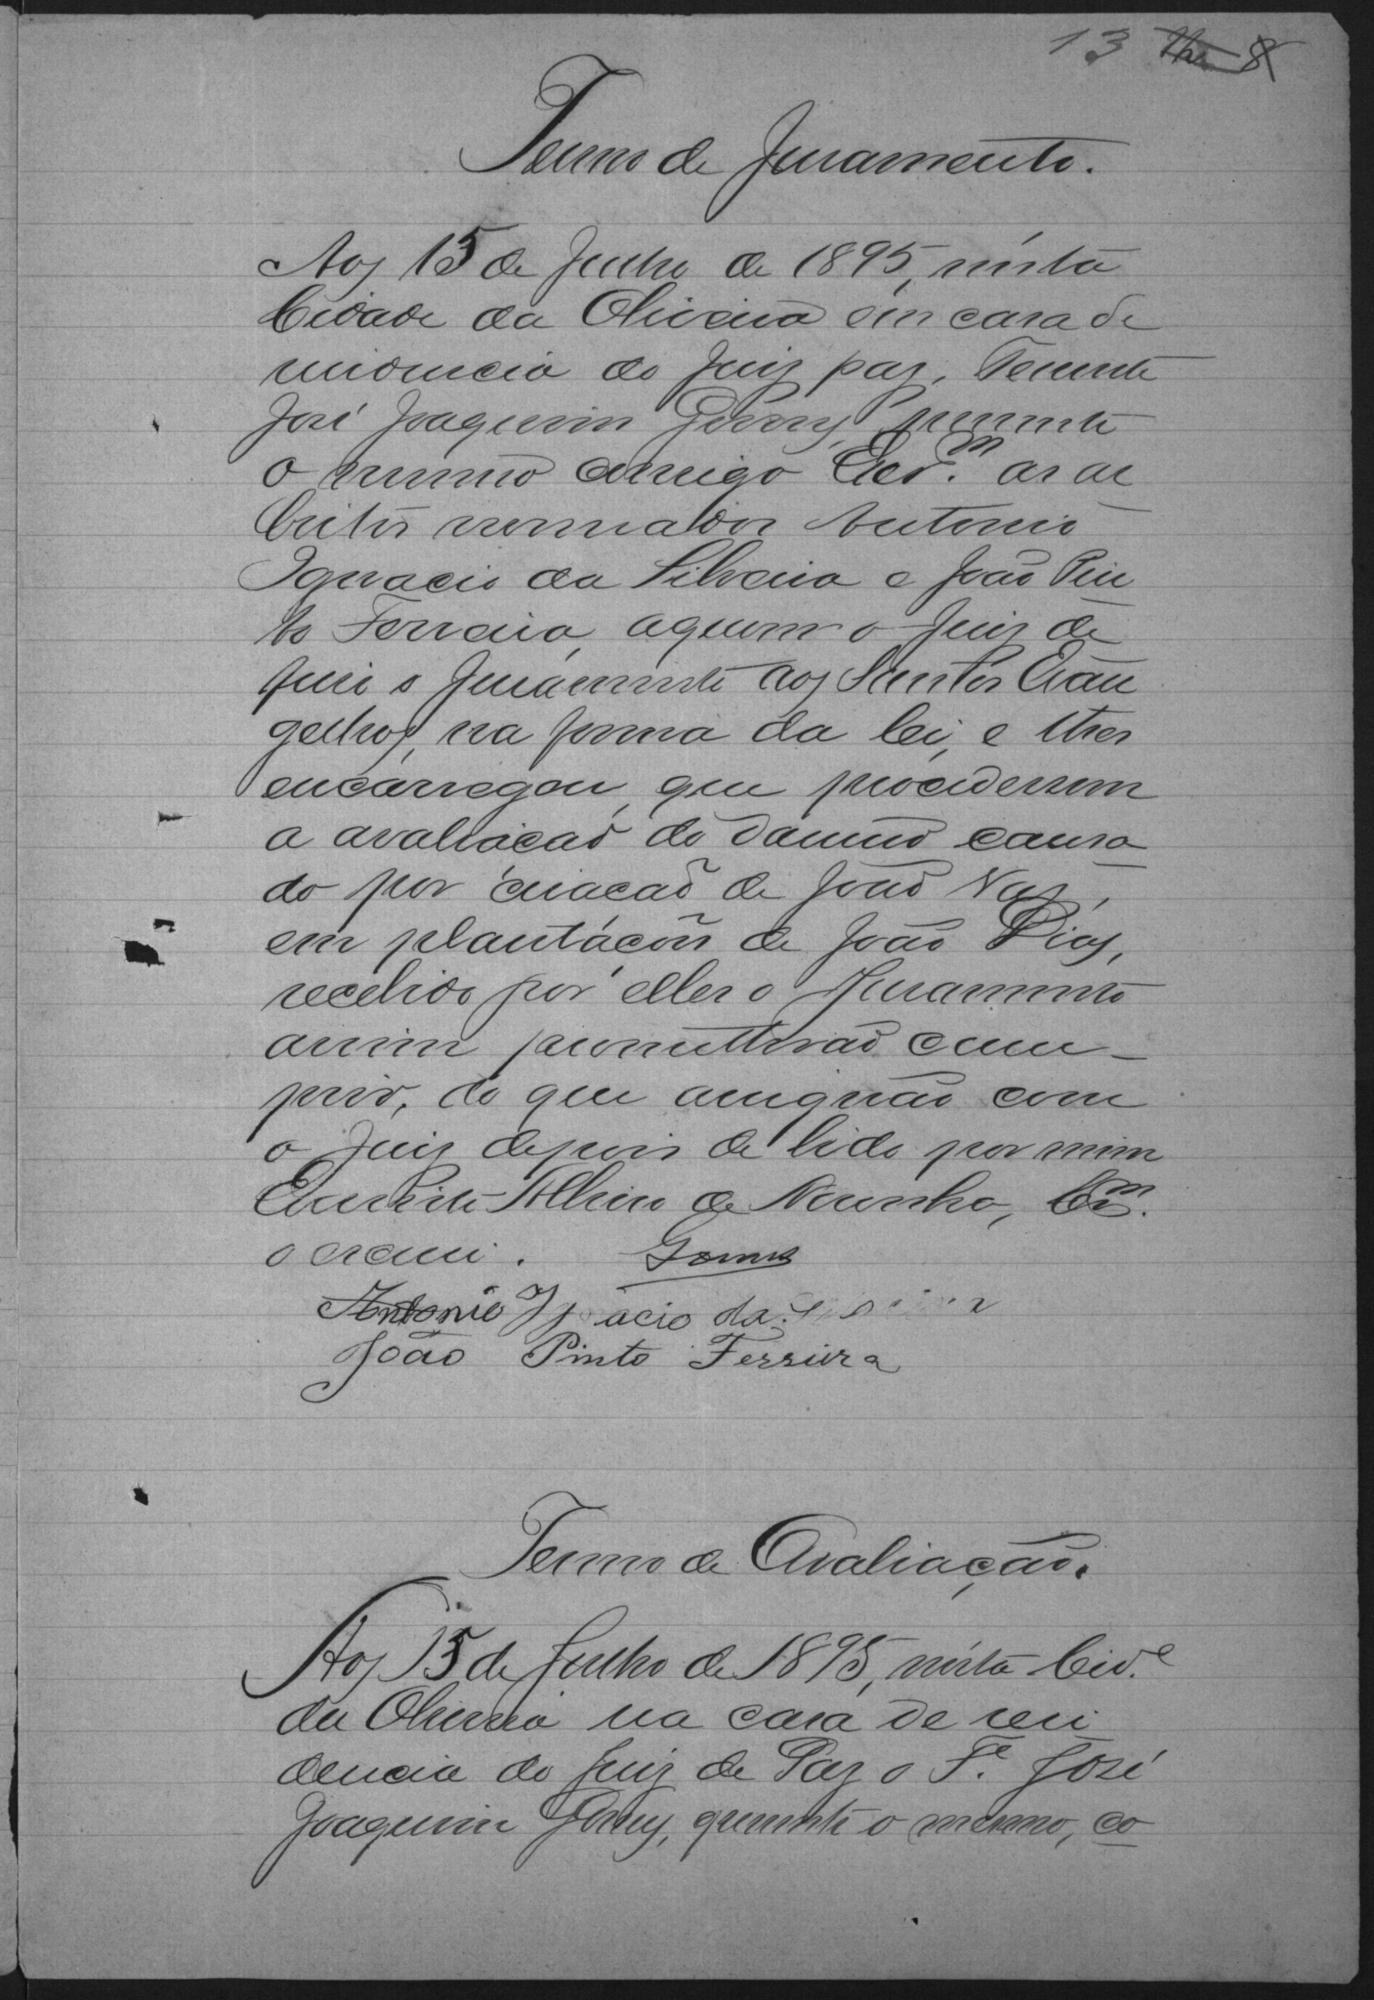 13
Termo de Juramento.
Aos 15 de Julho de 1895, nesta
Cidade da Oliveira em casa de
residencia do Juiz paz, Tenente
José Joaquim Gomes, presente
o mesmo comigo Escr.m os ar
bitros nomeados Antonio
Ignacio da Silveira e João Pin
to Ferreira, aquem o Juiz de
feri o Juramento aos Santos Evan
gelhos, na forma da lei, e lhes
encarregou, que procedessem
a avaliacão do damno causa
do por criacão de João Vaz,
em plantácões de João Dias,
recebido por elles o Juramento
assim prometterão cum-
prir, do que assignão com
o Juiz depois de lido por mim
de Noronha, Em.
o escrevi. Gomes
Antonio Ignacio da Silveira
João Pinto Ferreira
Termo de Avaliação.
Aos 15 de Julho de 1895, nesta Cid.e
da Oliveira na casa de resi
dencia do Juiz de Paz o T.e José
Joaquim Gomes, presente o mesmo, co